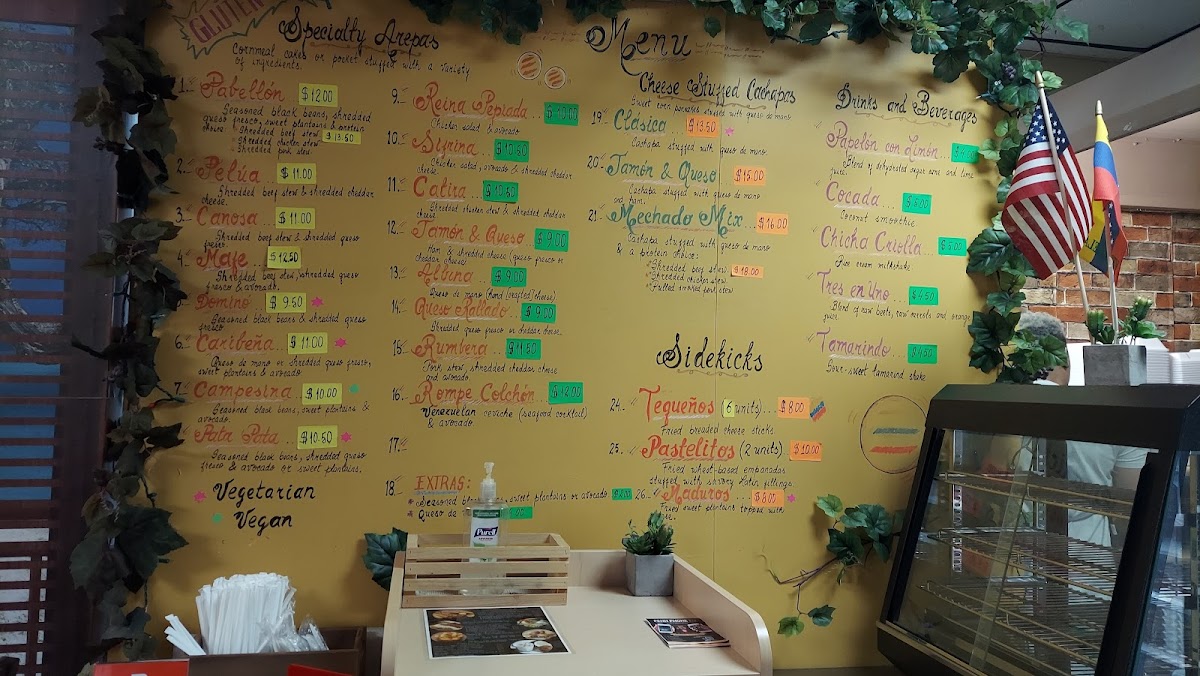 GLUTEN
Specialty Arepas
Cornmeal cakes or pocket stuffed with a variety
of ingredients.
1. Pabellón $12.00
Seasoned black beans, shredded
queso fresco, sweet plantains & protein
choice: $13.50
Shredded beef stew
Shredded chicken stew
Shredded pork stew
2. Pelúa $11.00
Shredded beef stew & shredded cheddar
cheese.
3. Canosa $11.00
Shredded beef stew & shredded queso
fresco
4. Maje $12.50
Shredded beef stew, shredded queso
fresco & avocado
Domino $9.50
Seasoned black beans & shredded queso
fresco
6. Caribeña $11.00
Queso de mano or shredded queso fresco,
sweet plantains & avocado
7. Campesina $10.00
Seasoned black beans, sweet plantains &
avocado.
Pata Pata $10.50
Seasoned black beans, shredded queso
fresco & avocado or sweet plantains.
Vegetarian
Vegan
9. Reina Pepiada
Chicken salad & avocado
10. Sifrina $10.50
Chicken salad, avocado & shredded cheddar
cheese.
11. Catira $10.50
Shredded chicken stew & shredded cheddar
cheese
12. Jamón & Queso $9.00
Ham & shredded cheese (queso fresco or
cheddar cheese)
13. Albina $9.00
Queso de mano (hand crafted cheese)
14. Queso Rallado $9.00
Shredded queso fresco or cheddar cheese.
15. Rumbera $11.50
Pork stew, shredded cheddar cheese
and avocado
16. Rompe Colchón $12.00
Venezuelan ceviche (seafood cocktail)
& avocado.
17.
18. EXTRAS:
Seasoned sweet plantains or avocado $2.00
Queso de
Purell
Menu
Cheese Stuffed Cachapas
Sweet corn pancakes stuffed with queso de mano
19. Clásica $13.50
Cachapa stuffed with queso de mano.
20. Jamón & Queso $15.00
Cachapa stuffed with queso de mano
and ham.
21. Mechado Mix $16.00
Cachapa stuffed with queso de mano
& a protein choice:
Shredded beef stew $18.00
Shredded chicken stew
Pulled smoked pork stew
Sidekicks
24. Tequeños (6 units) $8.00
Fried breaded cheese sticks.
25. Pastelitos (2 units) $10.00
Fried wheat-based empanadas
stuffed with savory Latin fillings.
26. Maduros $8.00
Fried sweet plantains topped with
Drinks and Beverages
Papelón con Limón
Blend of dehydrated sugar cane and lime
juice.
Cocada $6.00
Coconut smoothie
Chicha Criolla $5.00
Rice cream milkshake
Tres en Uno $4.50
Blend of raw beets, raw carrots and orange
juice.
Tamarindo $4.50
Sour-sweet tamarind shake